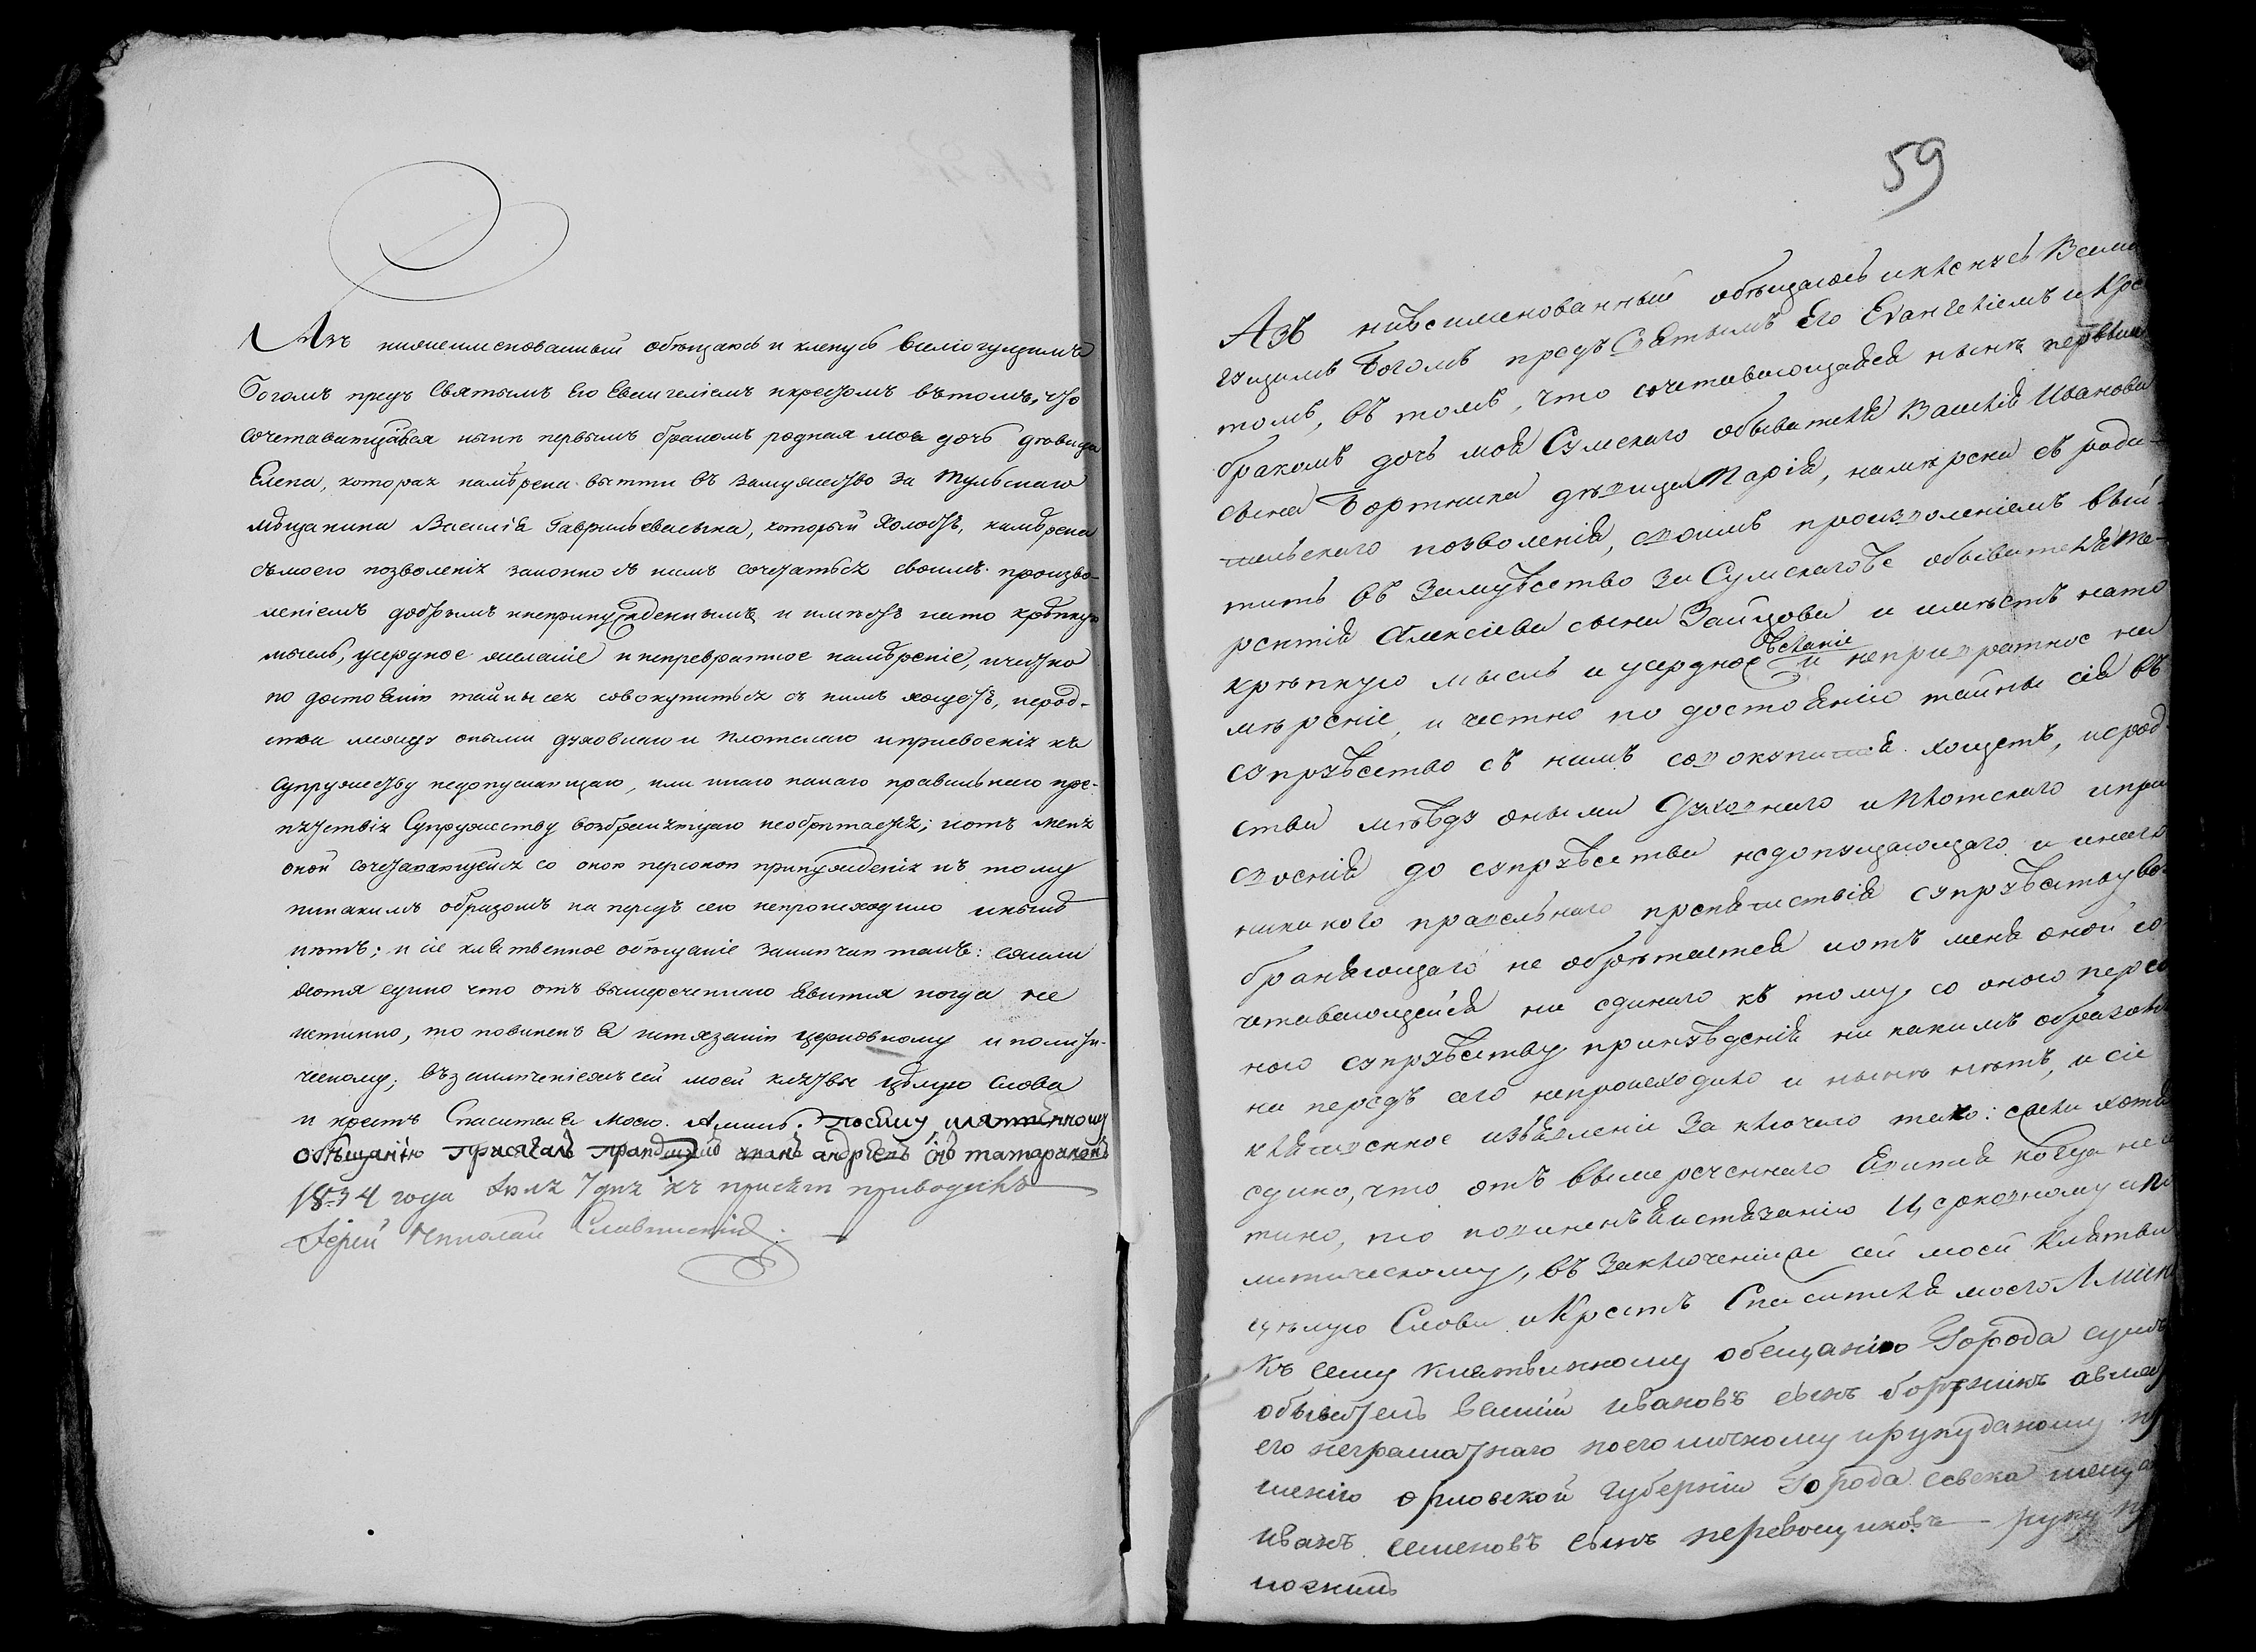 Азъ нижеимянованный обѣщаюсь и кленусь всемогущимъ
Богомъ предъ Святымъ Его Евангеліемъ и крестомъ въ томъ, что
сочетавающаяся нынѣ первымъ бракомъ родная моя дочь дѣвица
Елена, которая намѣрена вытти въ замужество за Тульскаго
мѣщанина Василія Гаврильева сына, который холостъ, намѣрена
съ моего позволенія законно съ нимъ сочетатьса своимъ произво-
леніемъ добрымъ и непринужденнымъ, и имѣетъ на то крѣпкую
мысль, усердное желаніе и непревратное намѣреніе, и честно
по достоянію тайны сея совокупитьса съ нимъ хощетъ, и срод-
ства между оными духовнаго и плотскаго и присвоенія къ
супружеству недопускающаго, или инаго какаго правильнаго пре-
пятствія супружеству возбраняющаго необрѣтается; и отъ меня
оной сочетавающейся со оною персоною принужденія къ тому
никакимъ образомъ на предъ сего непроисходило и нынѣ
нѣтъ; и сіе клятвенное обѣщаніе заключаю такъ: ежели
хотя едино что отъ вышереченнаго явится когда не
истинно, то повиненъ я истязанію церковному и полити-
ческому; въ заключеніе жъ сей моей клятвы цѣлую слова
и крестъ Спасителя Моего. Аминь. По сему клятвенному
обѣщанію присягалъ иванъ андрѣевъ сынъ татариновъ
1834 года 7 дня къ присягѣ приводилъ
Іерей Николай Славинскій
59
Азъ нижеименованный обѣщаюсь и кленусь Всемо
гущимъ Богомъ предъ Святымъ Его Евангеліемъ и Крес
томъ, въ томъ, что сочетавающаяся нынѣ первымъ
бракомъ дочь моя Сумскаго обывателя Василія Иванова
сына Бортника дѣвица Марія, намѣрена съ роди-
тельскаго позволенія, своимъ произволеніемъ вый-
тить въ замужество за Сумскагоже обывателя Те-
рентія Алексіева сына Зайцова и имѣетъ на то
крѣпкую мысль и усердное желаніе и непревратное на
мѣреніе, и честно по достоянію тайны сея въ
супружество съ нимъ совокупится хощетъ, и срод
ства между оными Духовнаго и Плотскаго и при
своенія до супружества недопущающаго и инаго
никакого правильнаго препятствія супружеству воз
браняющаго не обрѣтается и отъ меня оной со
четавающейся ни единаго къ тому со оною персо
ною супружеству принужденія ни какимъ образомъ
на передъ сего непроисходило и нынѣ нѣтъ, и сіе
клятвенное изъявленіе заключаю тако: ежели хотя
едино, что отъ вышереченнаго явится когда не ис
тино, то повиненъ я истязанію Церковному и По
литическому, въ заключеніи же сей моей Клятвы
цѣлую Слова и Крестъ Спасителя моего Аминь
Къ сему клятвенному обещанію Города сумъ
обыватель василій ивановъ сынъ бортникъ а вместо
его неграмотнаго по его личному и рукуданому про
шенію орловской губерніи Города севска мещанинъ
иванъ семеновъ сынъ перевощиковъ руку при
ложилъ